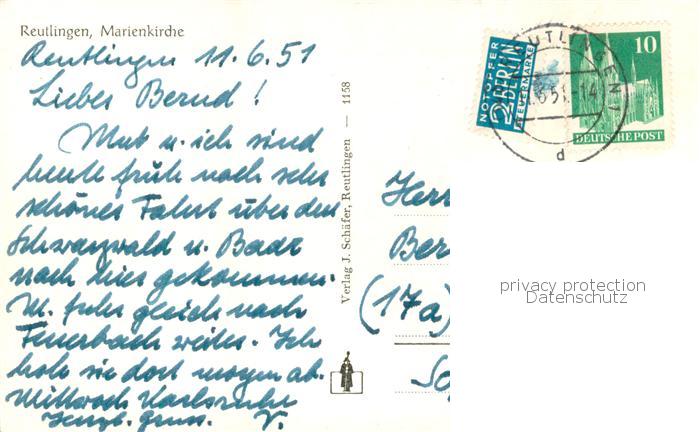 Reutlingen, Marienkirche
Reutlingen 11.6.51
Lieber Bernd!
Mut u. ich sind
heute früh nach sehr
schöner Fahrt über den
Schwarzwald u. Bad
nach hier gekommen.
M. fuhr gleich nach
Feuerbach weiter. Ich
hole sie dort morgen ab.
Mittwoch Karlsruhe
Herzl. Gruss. V.
Verlag J. Schäfer, Reutlingen — 1158
NOTOPFER
2 BERLIN
STEUERMARKE
REUTLINGEN 1
.6.51.-14
d
10
DEUTSCHE POST
Herr
Ber
(17a)
privacy protection
Datenschutz